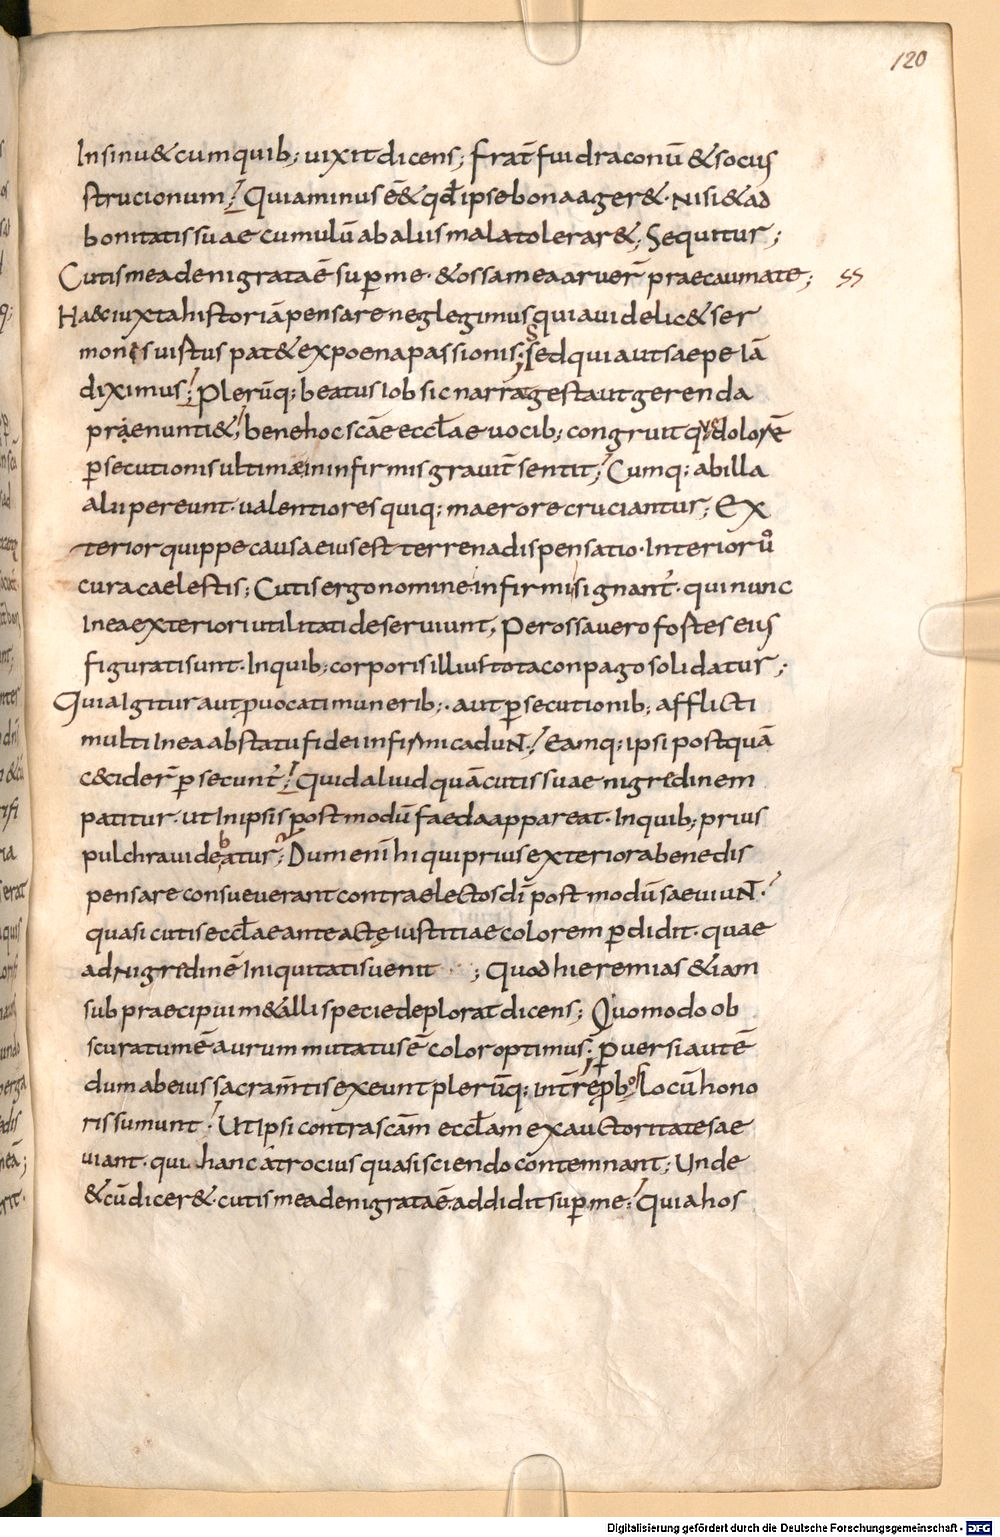 120
Insinu&cumquib; uixitdicens; frat̄ fuidraconū &socius
strucionum; Quiaminus ē& qd̄ ipsebonaager&· Nisi&ad
bonitatis suae cumulū abaliis mala tolerar&; Sequitur;
Cutis mea denigrata ē sup̄ me· &ossa mea aruer̄ prae caumate; ss
Ha& iuxta historiā pensare neglegimus quia uidelic& ser
monis uistus pat& ex poena passionis; Sed quia ut saepe Iā
diximus; Plerūq; beatus Iob sic narrat gesta ut gerenda
praenunti&; bene hoc scāe eccl̄ae uocib; congruit quae dolorē
p̄secutionis ultimae in infirmis grauit̄ sentit; Cumq; ab illa
alii pereunt· ualentiores quiq; maerore cruciantur; Ex
terior quippe causa eius est terrena dispensatio· Interior ū
cura caelestis; Cutis ergo nomine infirmi signant̄· qui nunc
In ea exteriori utilitati deseruiunt, Per ossa uero fostes eius
figurati sunt· In quib; corporis illius tota conpago solidatur;
Quia Igitur aut p̄uocati munerib;· aut p̄secutionib; afflicti
multi In ea ab statu fidei infirmi caduNt; Eamq; ipsi postquā
c&cider̄ p̄secunt̄; Quid aliud quā cutis suae nigredinem
patitur· ut In ipsis post modū faeda appareat· In quib; prius
pulchra uidebatur; Dum eni hi qui prius exteriora bene dis
pensare consueuerant contra electos dī post modū saeuiuNt·
quasi cutis eccl̄ae ante actę iustitiae colorem p̄didit· quae
ad Nigredinē Iniquitatis uenit ; Quod hieremias &iam
sub praecipui m&alli specie deplorat dicens; Quomodo ob
scuratum ē aurum mutatus ē color optimus; p̄uersi autē
dum ab eius sacram̄tis exeunt plerūq; int̄ rep̄bos Locū hono
ris sumunt; Ut Ipsi contra scām eccl̄am ex auctoritate sae
uiant· qui hanc atrocius quasi sciendo contemnant; Unde
&cū dicer&· cutis mea denigrata ē· addidit sup̄ me; Quia hos
Digitalisierung gefördert durch die Deutsche Forschungsgemeinschaft - DFG